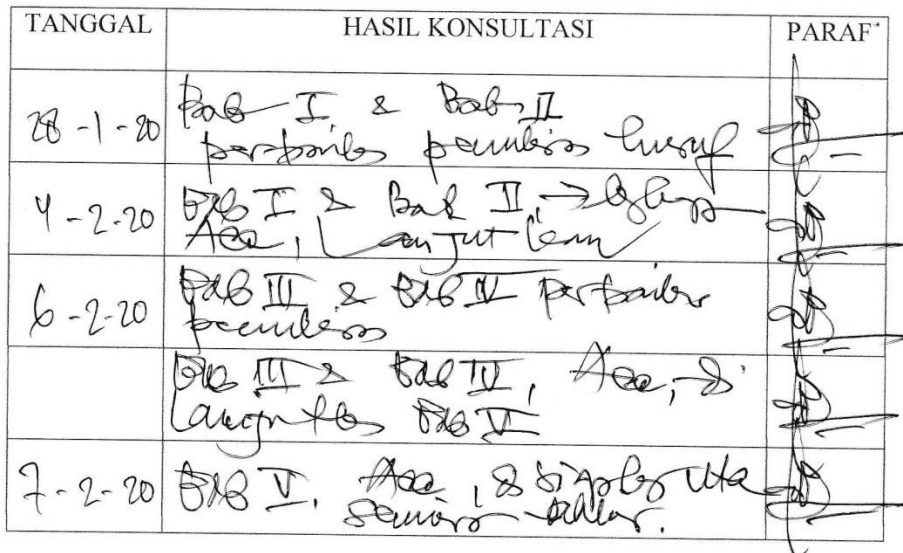 TANGGAL HASIL KONSULTASI PARAF*
28-1-20 Bab I & Bab II
perbaiki penulisan huruf
4-2-20 Bab I & Bab II →
Acc, Lanjutkan
6-2-20 Bab III & Bab IV perbaiki
penulisan
Bab III & Bab IV, Acc, di
lanjutkan Bab V
7-2-20 Bab V, Acc,
seminar